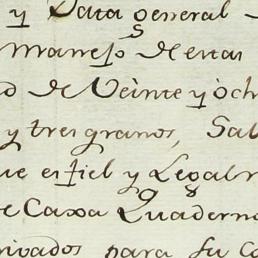 y Data general
Manejo de estas
de Veinte y och
y tres granos, Sal
ue es fiel y Legalm
e Caxa Quaderno
rivados para su co